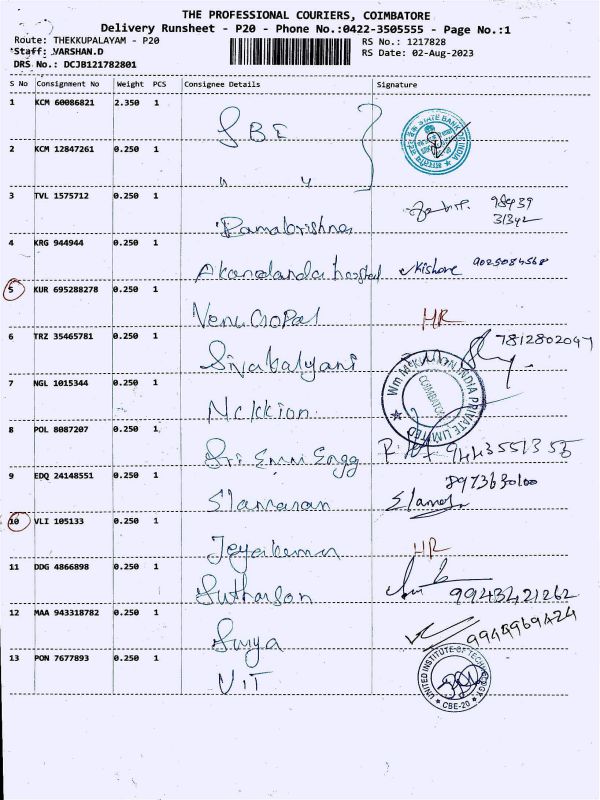 THE PROFESSIONAL COURIERS, COIMBATORE
Delivery Runsheet - P20 - Phone No.:0422-3505555 - Page No.:1
Route: THEKKUPALAYAM - P20 RS No.: 1217828
Staff: VARSHAN.D RS Date: 02-Aug-2023
DRS No.: DCJB121782801
S No Consignment No Weight PCS Consignee Details Signature
1 KCM 60086821 2.350 1 SBI STATE BANK OF INDIA
2 KCM 12847261 0.250 1 " "
3 TVL 1575712 0.250 1 Ramakrishna 98439 31342
4 KRG 944944 0.250 1 Akandanda hospital Kishore 9025084568
5 KUR 695288278 0.250 1 Venu Gopal HR
6 TRZ 35465781 0.250 1 Sivakalyani 7812802097
7 NGL 1015344 0.250 1 Mckkion Wm McKINNON INDIA PRIVATE LIMITED COIMBATORE
8 POL 8087207 0.250 1 Sri Emni Engg 9443551355
9 EDQ 24148551 0.250 1 Elamaran 8973630100
10 VLI 105133 0.250 1 Jeyakumar HR
11 DDG 4866898 0.250 1 Sutharson 9943421262
12 MAA 943318782 0.250 1 Surya 9944969424
13 PON 7677893 0.250 1 UIT UNITED INSTITUTE OF TECHNOLOGY CBE-20